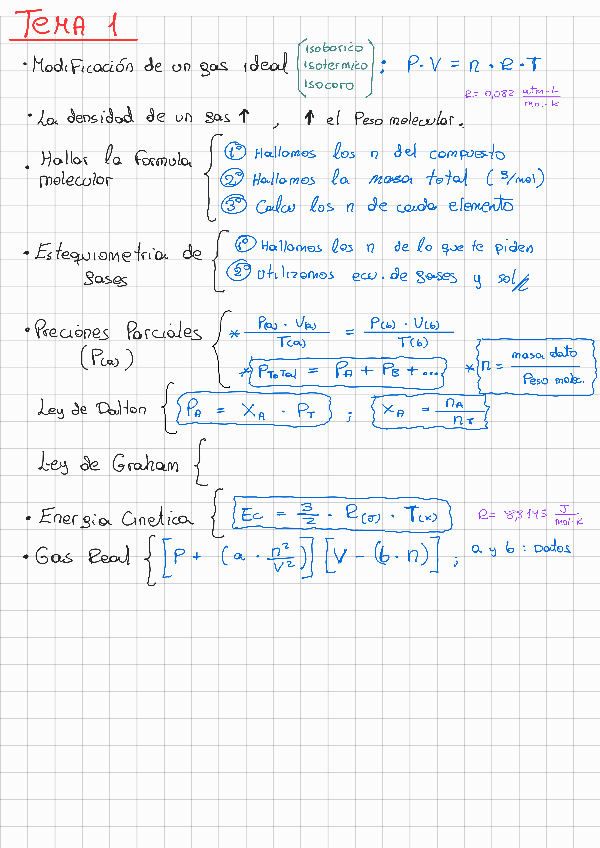 TEMA 1
· Modificación de un gas ideal (isobarico isotermico isocoro) : P · V = n · R · T
R = 0,082 atm · L / mol · K
· La densidad de un gas ↑ , ↑ el Peso molecular.
· Hallar la formula molecular
1º Hallamos los n del compuesto
2º Hallamos la masa total (g/mol)
3º Calcu los n de cada elemento
· Estequiometria de gases
1º Hallamos los n de lo que te piden
2º Utilizamos ecu. de gases y sol//
· Preciones Parciales (P(a))
* P(a) · V(a) / T(a) = P(b) · V(b) / T(b)
* PTotal = PA + PB + ... * n = masa dato / Peso molec.
Ley de Dalton { PA = XA · PT ; XA = nA / nT
Ley de Graham {
· Energia Cinetica { Ec = 3/2 · R(J) · T(K) R = 8,3145 J / mol · K
· Gas Real { [P + (a · n² / V²)] [V - (b · n)] ; a y b : Datos